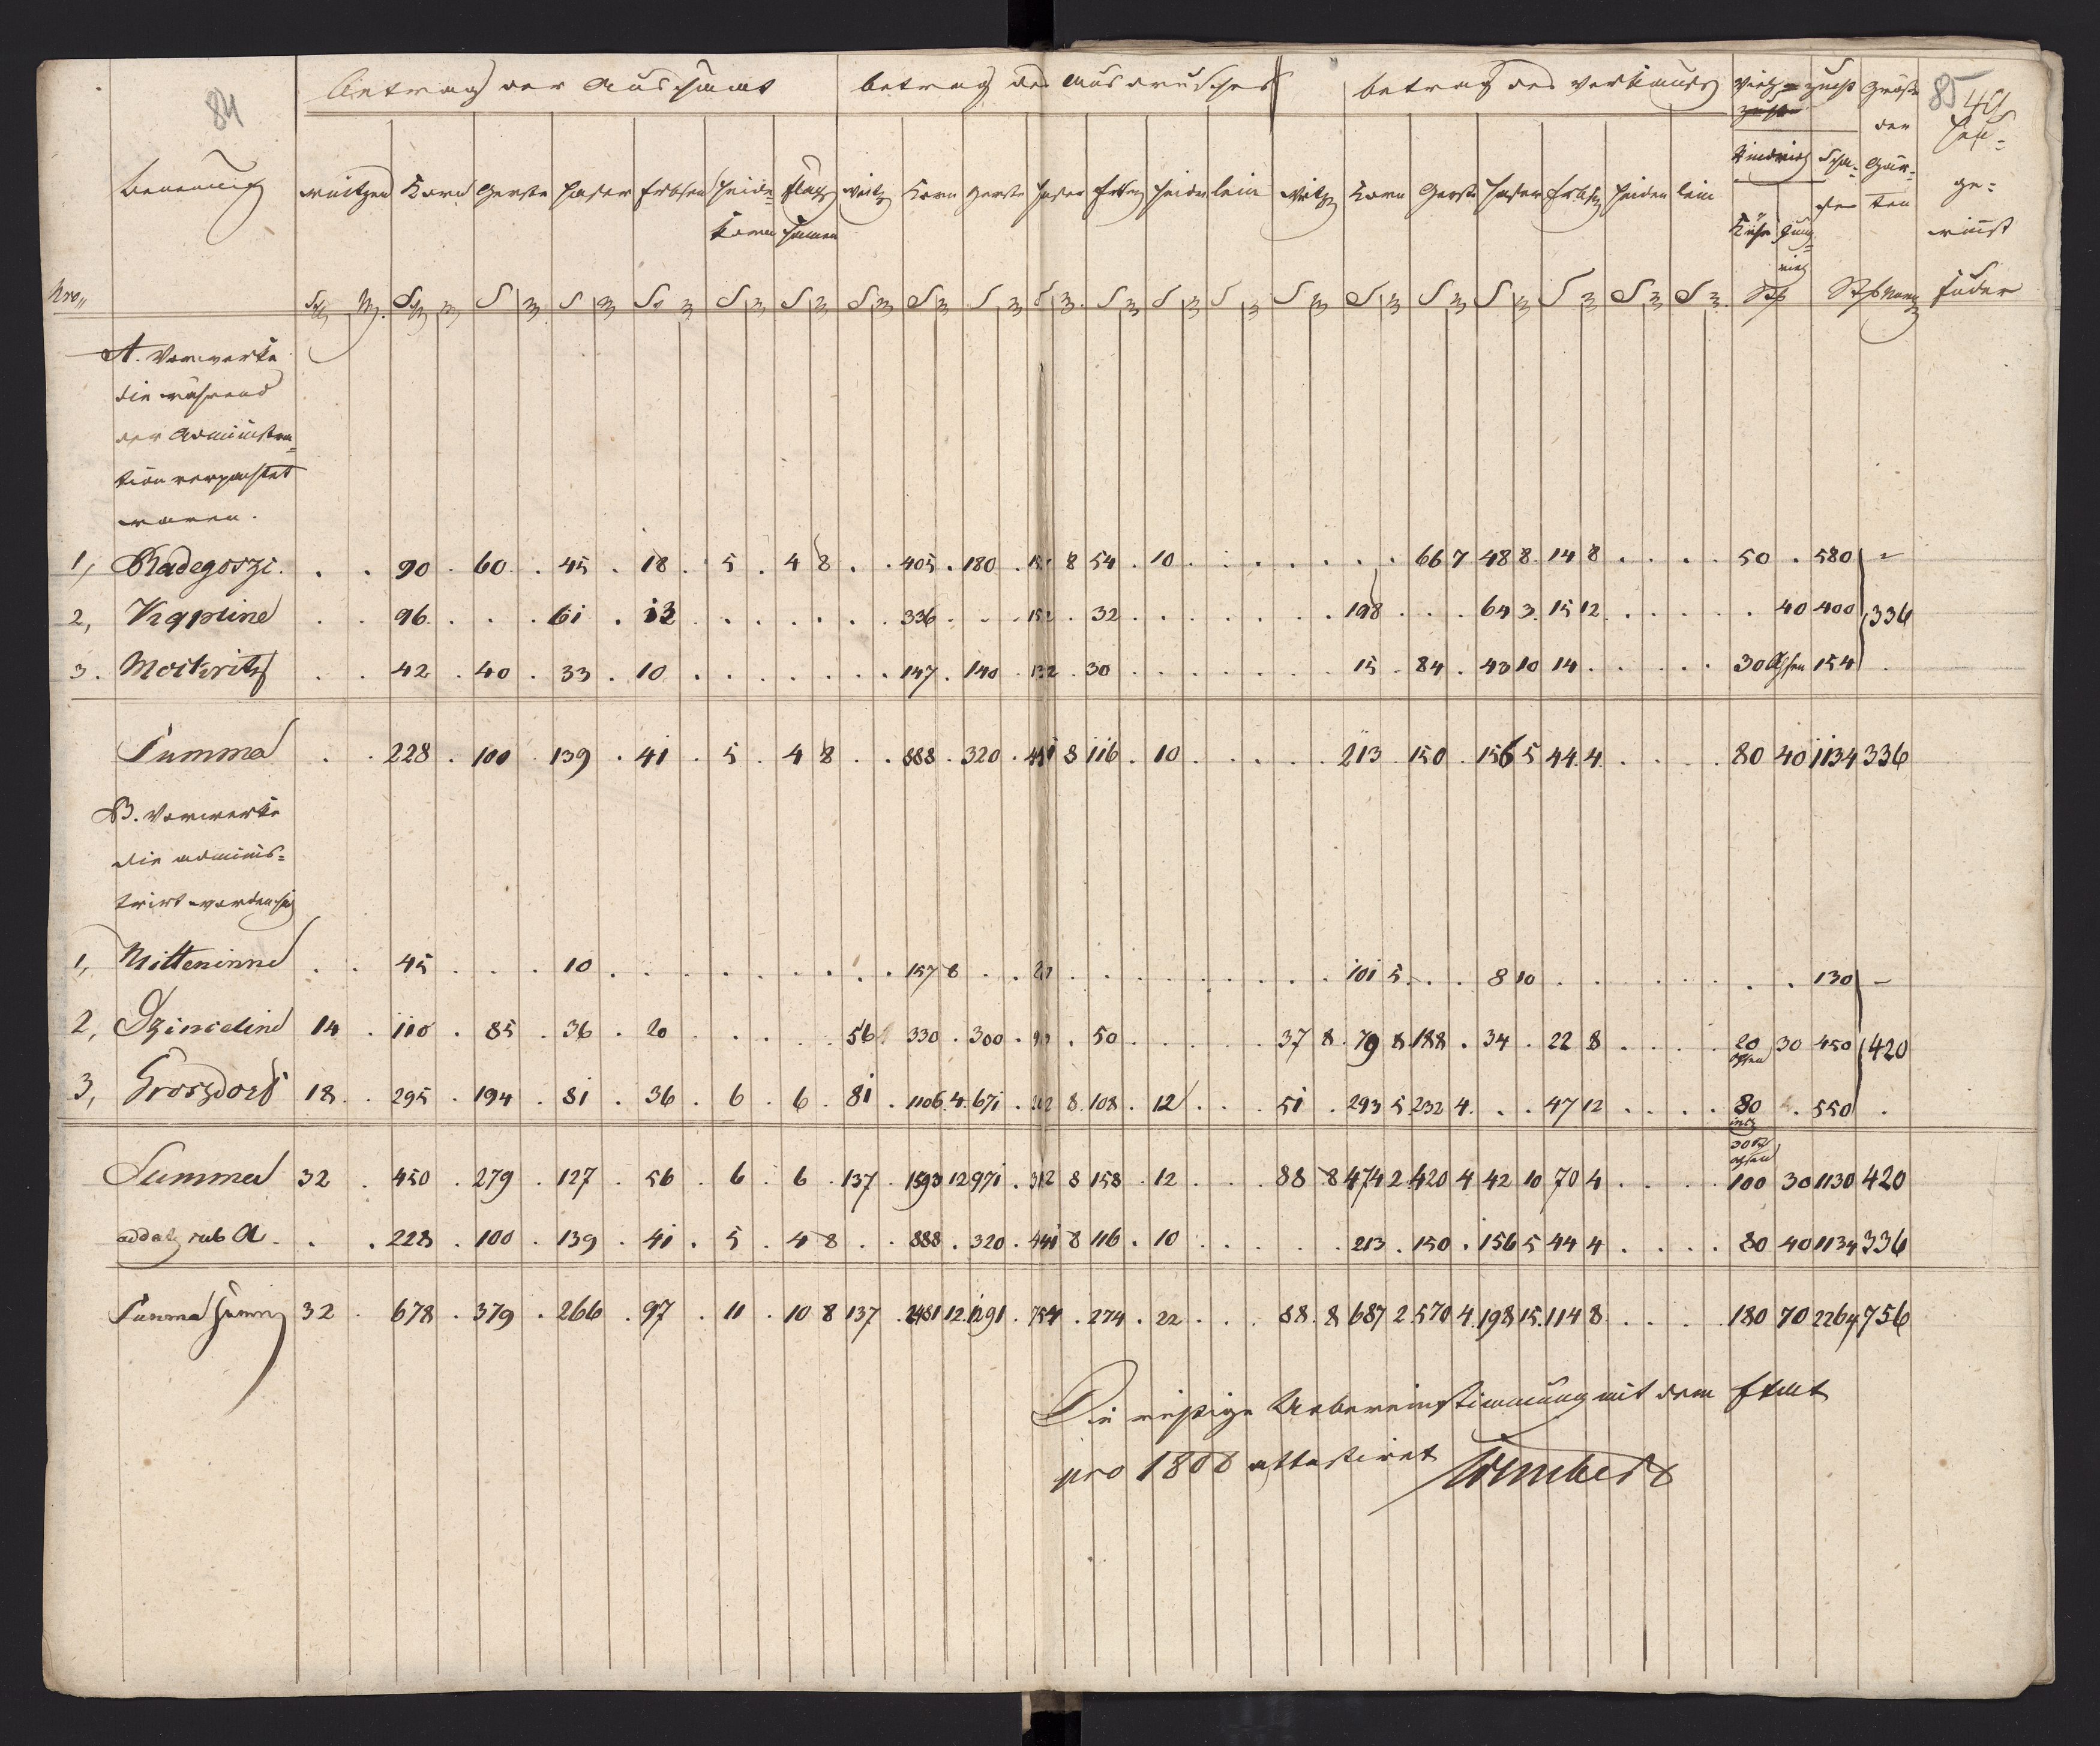 84
85
40
betrag der Aussaat betrag des Ausdrusches betrag des verkaufs Vieh=zucht größe
der Gär=ten
Heu=ge=winst
Rindvieh Scha=fe
Kühe Jung=vieh
Benennung Weitzen Korn Gerste Hafer Erbsen Heide=korn Flachs saamen Weitz Korn Gerste Hafer Erbsen Heiden lein Weitz Korn Gerste Hafer Erbsen Heiden lein
Nro,, Fuder
A. Vorwerke
die während
der Administra=
tion verpachtet
waren.
1, Radegoszi. . . 90 . 60 . 45 . 18 . 5 . 4 8 . . 405 . 180 . 8 54 . 10 . . . . . . . 66 7 48 8 14 8 . . . . 50 . 580 -
2, . . 96 . . . 61 . 12 . . . . . . . . 336 . . . 152 . 32 . . . . . . . 198 . . . 64 3 15 12 . . . . . 40 400 336
3. . . 42 . 40 . 33 . 10 . . . . . . . . 147 . 140 . 132 . 30 . . . . . . . 15 . 84 . 43 10 14 . . . . . 30 Ochsen 154 .
Summa . . 228 . 100 . 139 . 41 . 5 . 4 8 . . 888 . 320 . 441 8 116 . 10 . . . . . 213 . 150 . 156 5 44 4 . . . . 80 40 1134 336
B. Vorwerke
die adminis=
trirt worden sind
1, Mitteninne . . 45 . . . 10 . . . . . . . . . . 157 8 . . . . . . . . . . . . 101 5 . . . 8 10 . . . . . . . 130 -
2, 14 . 110 . 85 . 36 . 20 . . . . . 56 . 330 . 300 . . 50 . . . . . 37 8 79 8 188 . 34 . 22 8 . . . . 20 Ochsen 30 450 420
3, Groszdorf 18 . 295 . 194 . 81 . 36 . 6 . 6 . 81 . 1106 4 671 . 8 108 . 12 . . . 51 . 293 5 232 4 . . 47 12 . . . . 80 . 550 .
30 St
Ochsen
Summa 32 . 450 . 279 . 127 . 56 . 6 . 6 . 137 . 1593 12 971 . 312 8 158 . 12 . . . 88 8 474 2 420 4 42 10 70 4 . . . . 100 30 1130 420
addatz sub A . . . 228 . 100 . 139 . 41 . 5 . 4 8 . . 888 . 320 . 441 8 116 . 10 . . . . . 213 . 150 . 156 5 44 4 . . . . 80 40 1134 336
Summa Summ 32 . 678 . 379 . 266 . 97 . 11 . 10 8 137 . 2481 12 1291 . 754 . 274 . 22 . . . 88 8 687 2 570 4 198 15 114 8 . . . . 180 70 2264 756
Die richtige Uebereinstimmung mit dem Etat
pro 1806 attestiret